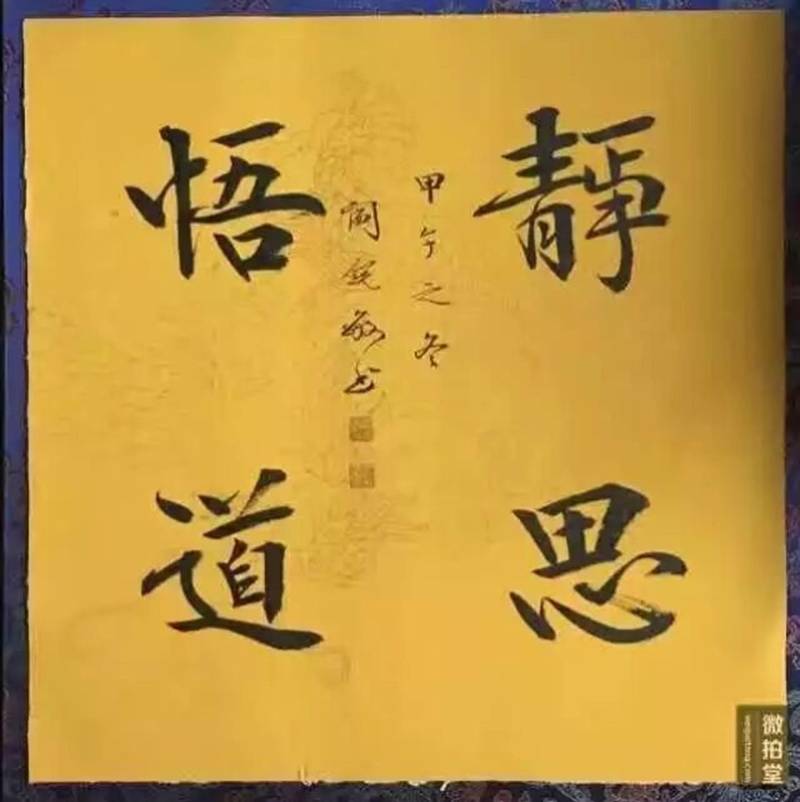 靜思
悟道
甲午之冬
微拍堂